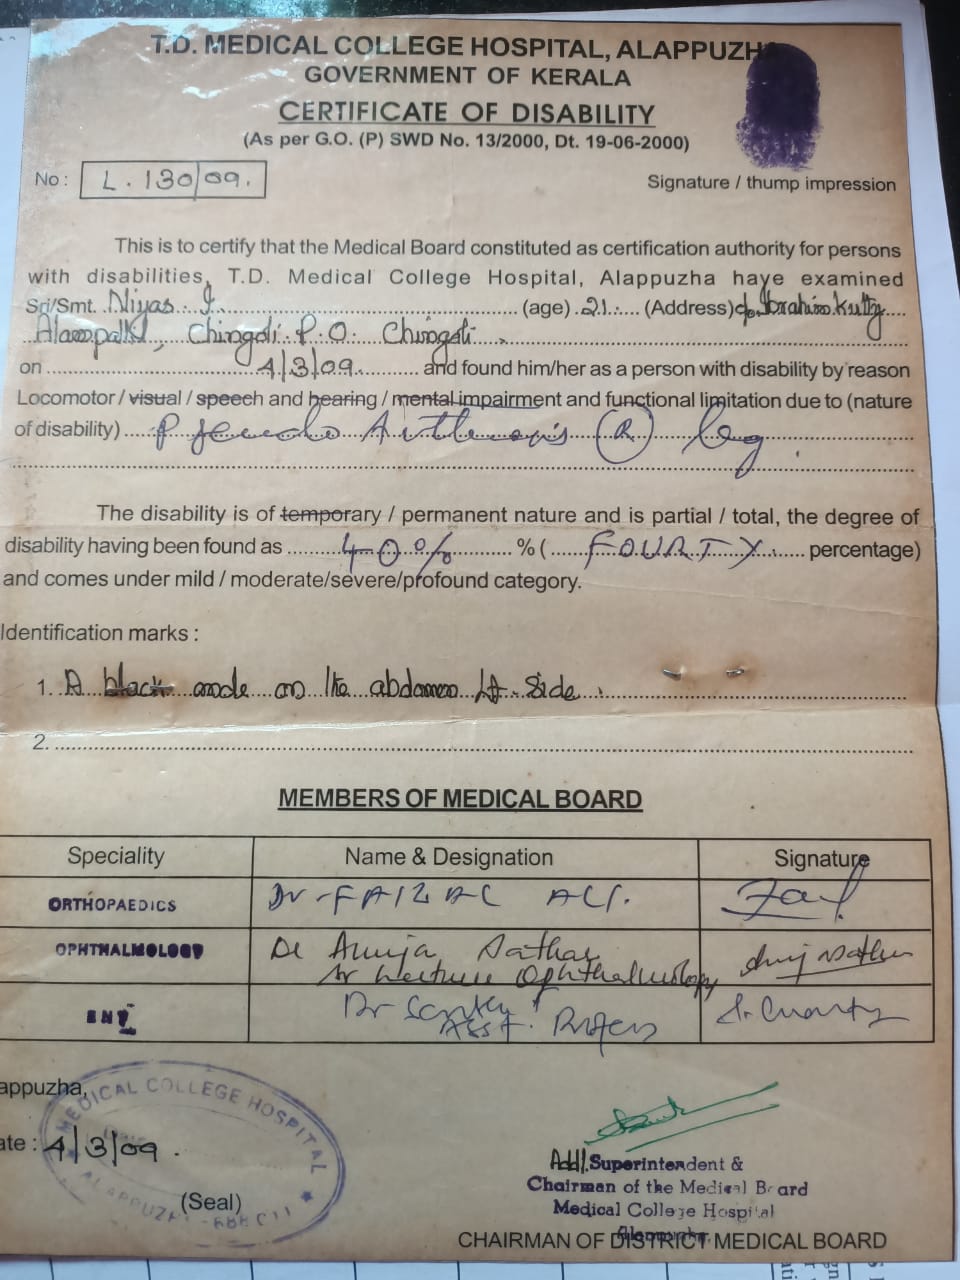 T.D. MEDICAL COLLEGE HOSPITAL, ALAPPUZHA
GOVERNMENT OF KERALA
CERTIFICATE OF DISABILITY
(As per G.O. (P) SWD No. 13/2000, Dt. 19-06-2000)
No : L. 130/09.
Signature / thump impression
This is to certify that the Medical Board constituted as certification authority for persons
with disabilities, T.D. Medical College Hospital, Alappuzha have examined
Sri/Smt. Niyas. I. (age) 21 (Address) Ibrahim Kutty
Chingoli. P.O. Chingoli
on 4/3/09 and found him/her as a person with disability by reason
Locomotor / visual / speech and hearing / mental impairment and functional limitation due to (nature
of disability) Pseudo Arthrosis (R) leg.
The disability is of temporary / permanent nature and is partial / total, the degree of
disability having been found as 40% % ( FOURTY percentage)
and comes under mild / moderate/severe/profound category.
Identification marks :
1. A black mole on the abdomen Lt. side.
2.
MEMBERS OF MEDICAL BOARD
Speciality Name & Designation Signature
ORTHOPAEDICS Dr. FAIZAL ALI.
OPHTHALMOLOGY Dr Anuja Sathar
Sr Lecturer Ophthalmology
ENT Dr
Asst.
appuzha,
MEDICAL COLLEGE HOSPITAL
ate : 4/3/09.
(Seal)
Addl. Superintendent &
Chairman of the Medical Board
Medical College Hospital
Alappuzha.
CHAIRMAN OF DISTRICT MEDICAL BOARD